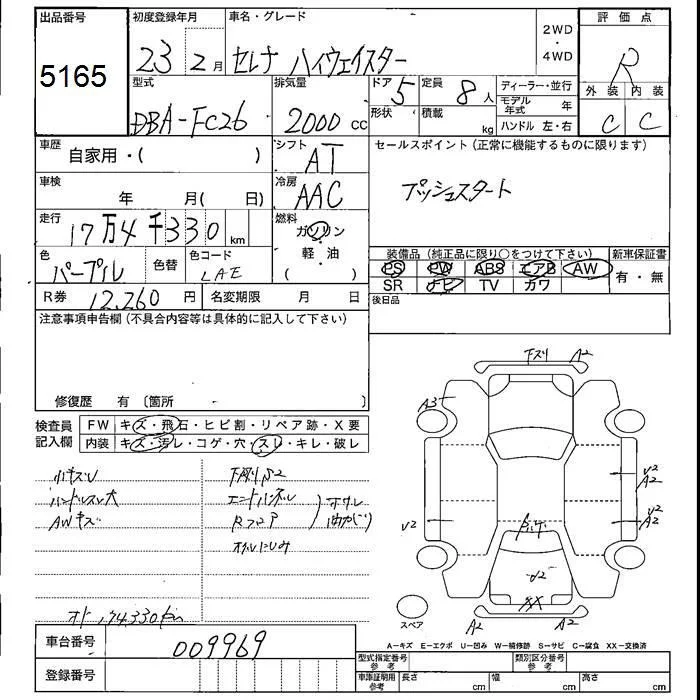 出品番号
5165
初度登録年月
23 2月
車名・グレード
セレナ ハイウェイスター
2WD
・
4WD
評価点
R
外装 内装
C C
型式
DBA-FC26
排気量
2000 cc
ドア 5
形状
定員 8人
積載 kg
ディーラー・並行
モデル年式 年
ハンドル 左・右
車歴
自家用・( )
シフト
AT
セールスポイント(正常に機能するものに限ります)
プッシュスタート
車検
年 月( 日)
冷房
AAC
走行
17万4千330 km
燃料
ガソリン
・
軽・油
( )
色
パープル
色替
色コード
LAE
装備品(純正品に限り○をつけて下さい)
新車保証書
PS PW ABS エアB AW
有・無
SR ナビ TV カワ
R券 12,260 円
名変期限 月 日
後日品
注意事項申告欄(不具合内容等は具体的に記入して下さい)
修復歴 有〔箇所 〕
検査員
記入欄
FW キズ・飛石・ヒビ割・リペア跡・X要
内装 キズ・汚レ・コゲ・穴・スレ・キレ・破レ
小キズU
ハンドルスレ大
AWキズ
エンドパネル
Rフロア
オト,174,330km
下スリ A2
A3
V2
A2
V2
A2
V2
XX
A2
A2
スペア
A−キズ E−エクボ U−凹み W−補修跡 S−サビ C−腐食 XX−交換済
車台番号
009969
登録番号
型式指定番号
参考
類別区分番号
参考
車庫証明用
参考
長さ cm
幅 cm
高さ cm